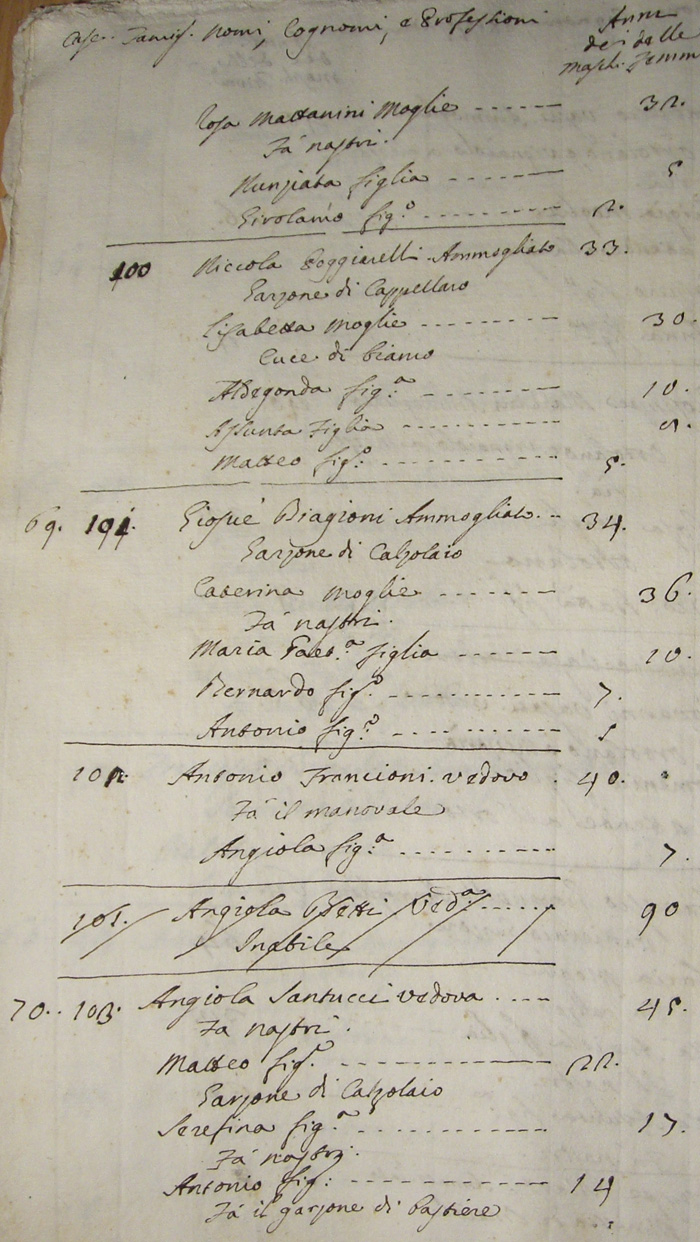 Case. Famig. Nomi, Cognomi, e Professioni Anni
dei delle
maschi. Femm
Rosa Mattanini Moglie 32.
Fá nastri.
Nunziata figlia 5
Girolamo fig.o 2.
100 Niccola Poggiarelli Ammogliato 33.
Garzone di Cappellaro
Lisabetta Moglie 30.
Cuce di bianco
Aldegonda fig.a 10.
Assunta Figlia
Matteo fig.o 5.
69. 101. Giosué Biagioni Ammogliato 34.
Garzone di Calzolaio
Caterina Moglie 36.
Fá nastri.
Maria Gaet.a figlia 10.
Bernardo fig.o 7.
Antonio fig.o 5
102. Antonio Francioni. vedovo. 40.
Fá il manovale
Angiola fig.a 7.
Angiola Betti Ved.a 90
Inabile
70. 103. Angiola Santucci vedova 45.
Fa nastri.
Matteo fig.o 22.
Garzone di Calzolaio
Serefina fig.a 17.
Fá nastri.
Antonio fig: 14
Fá il garzone di Pastiere